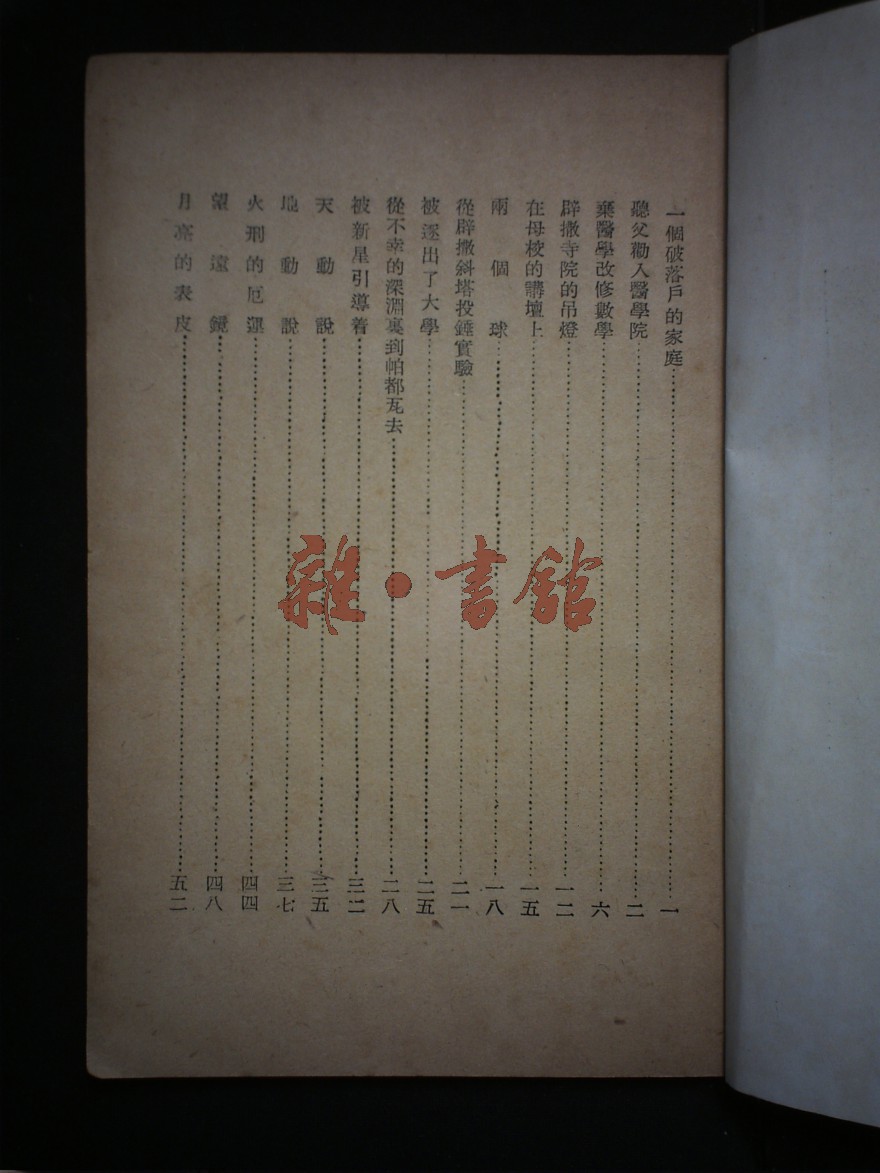 一個破落戶的家庭……一
聽父勸入醫學院……二
棄醫學改修數學……六
辟撒寺院的吊燈……一二
在母校的講壇上……一五
兩個球……一八
從辟撒斜塔投錘實驗……二一
被逐出了大學……二五
從不幸的深淵裏到帕都瓦去……二八
被新星引導着……三二
天動說……三五
地動說……三七
火刑的厄運……四四
望遠鏡……四八
月亮的表皮……五二
雜·書館